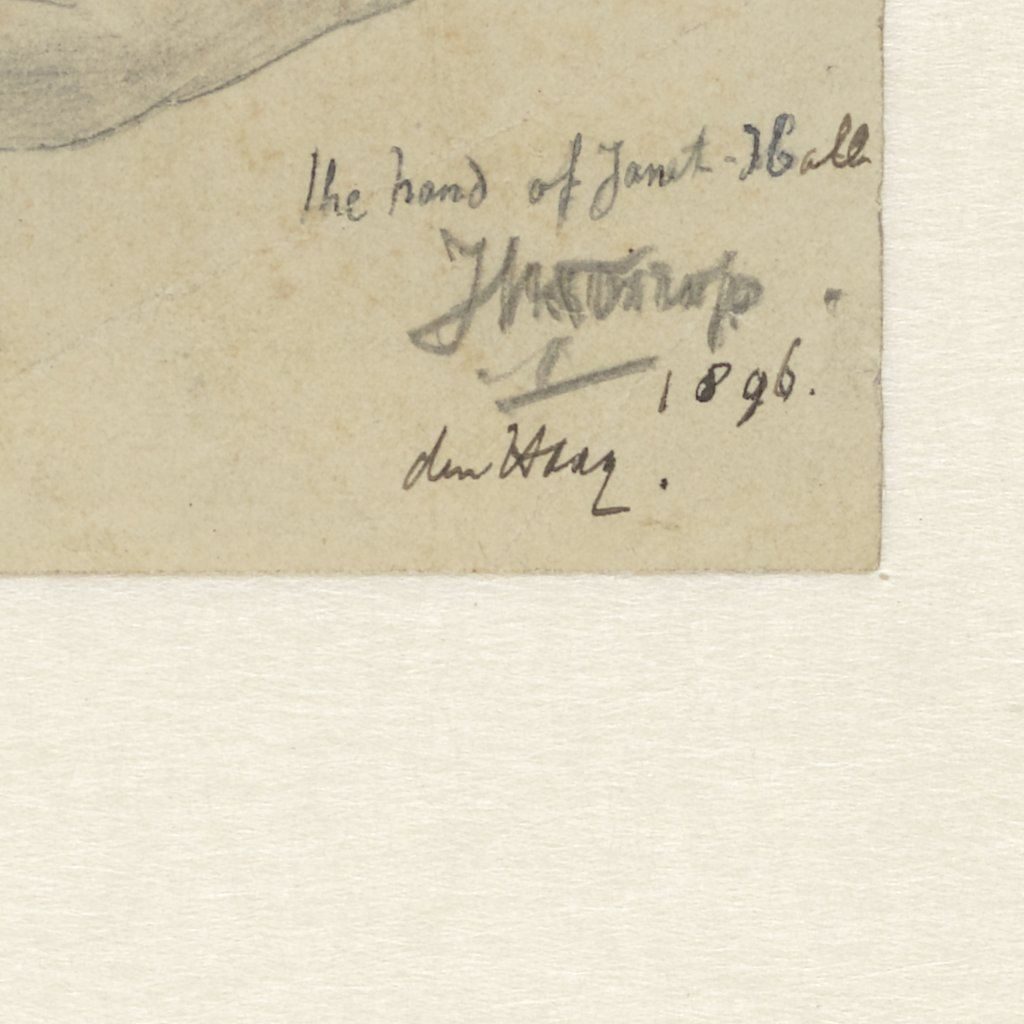 the hand of Janet-Hall
JTh Toorop
1896.
den Haag.